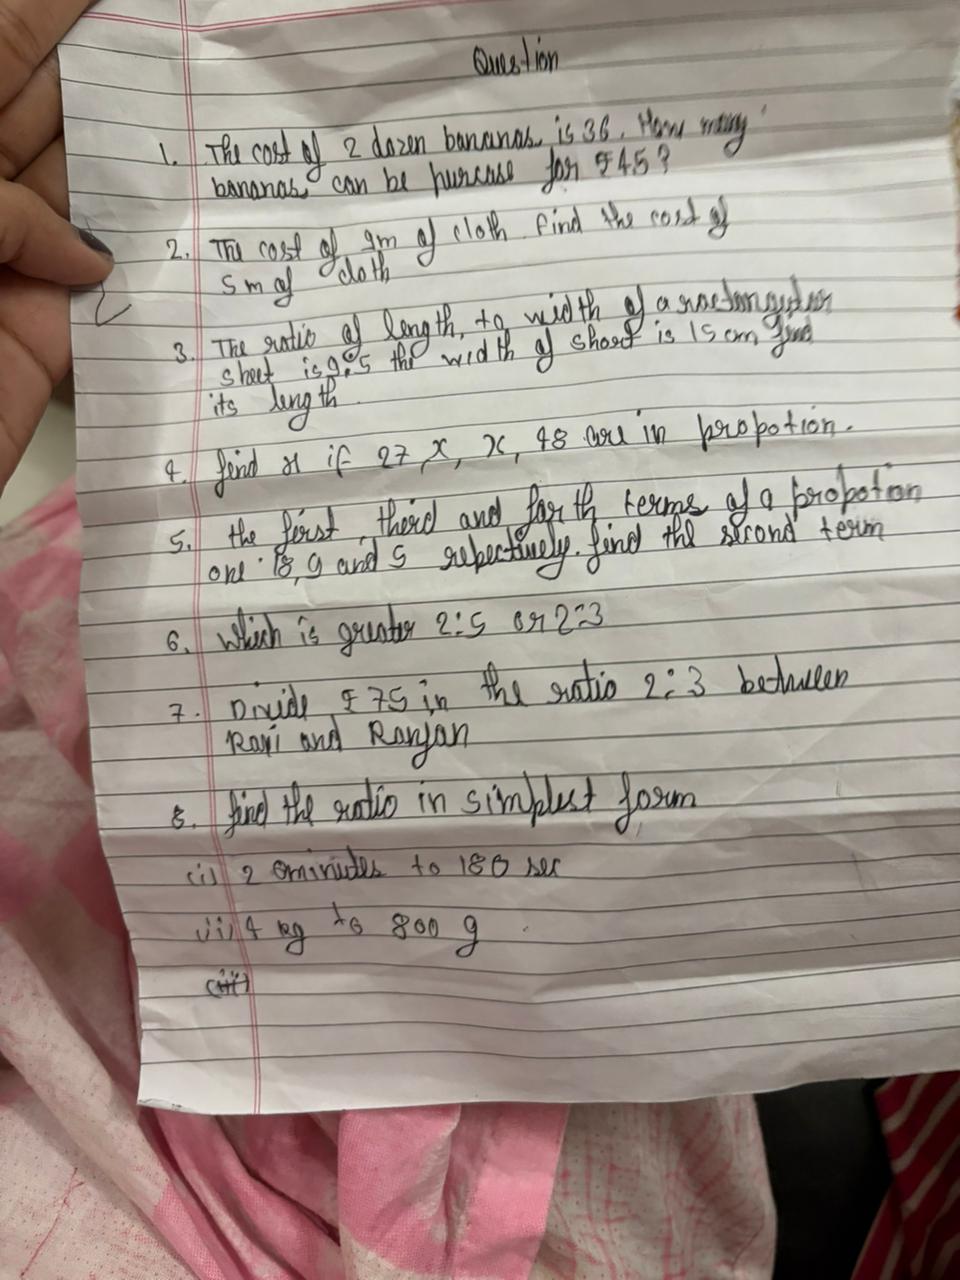 Question
1. The cost of 2 dozen bananas is 36. How many
bananas can be purcase for ₹45?
2. The cost of 9m of cloth. find the cost of
5m of cloth
3. The ratio of length, to width of a ractangular
sheet is 9:5 the width of sheet is 15 cm find
its length.
4. find x if 27, x, x, 48 are in propotion.
5. the first, third and forth terms of a propotion
one 18, 9 and 5 repectively. find the second term
6. Which is greater 2:5 or 2:3
7. Divide ₹75 in the ratio 2:3 between
Ravi and Ranjan
8. find the ratio in simplest form
(i) 2 0minutes to 180 sec
(ii) 4 kg to 800 g
(iii)